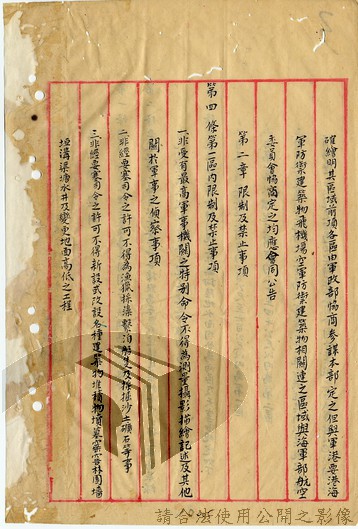 確繪明其區域前項各區由軍政部協商參謀本部定之但與軍港要港海
軍防禦建築物飛機場空軍防禦建築物相關連之區域與海軍部航空
委員會協商定之均應會同公告
第二章 限制及禁止事項
第四條第一區內限制及禁止事項
一、非受有最高軍事機關之特別命令不得為測量攝影描繪記述及其他
關於軍事之偵察事項
二、非經要塞司令之許可不得為漁獵採藻繫泊船隻及採掘沙土礦石等事
三、非經要塞司令之許可不得新設或改設各種建築物堆積物墳墓窯窖林園墻
垣溝渠塘水井及變更地面高低之工程
請合法使用公開之影像